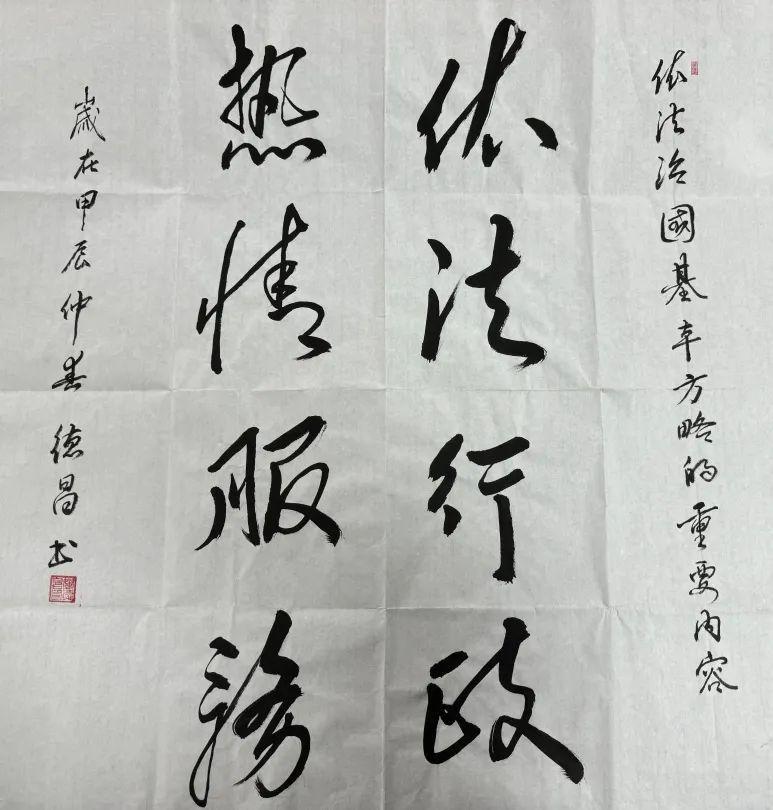 依法治國基本方略的重要内容
依法行政
热情服務
歲在甲辰仲春 德昌书